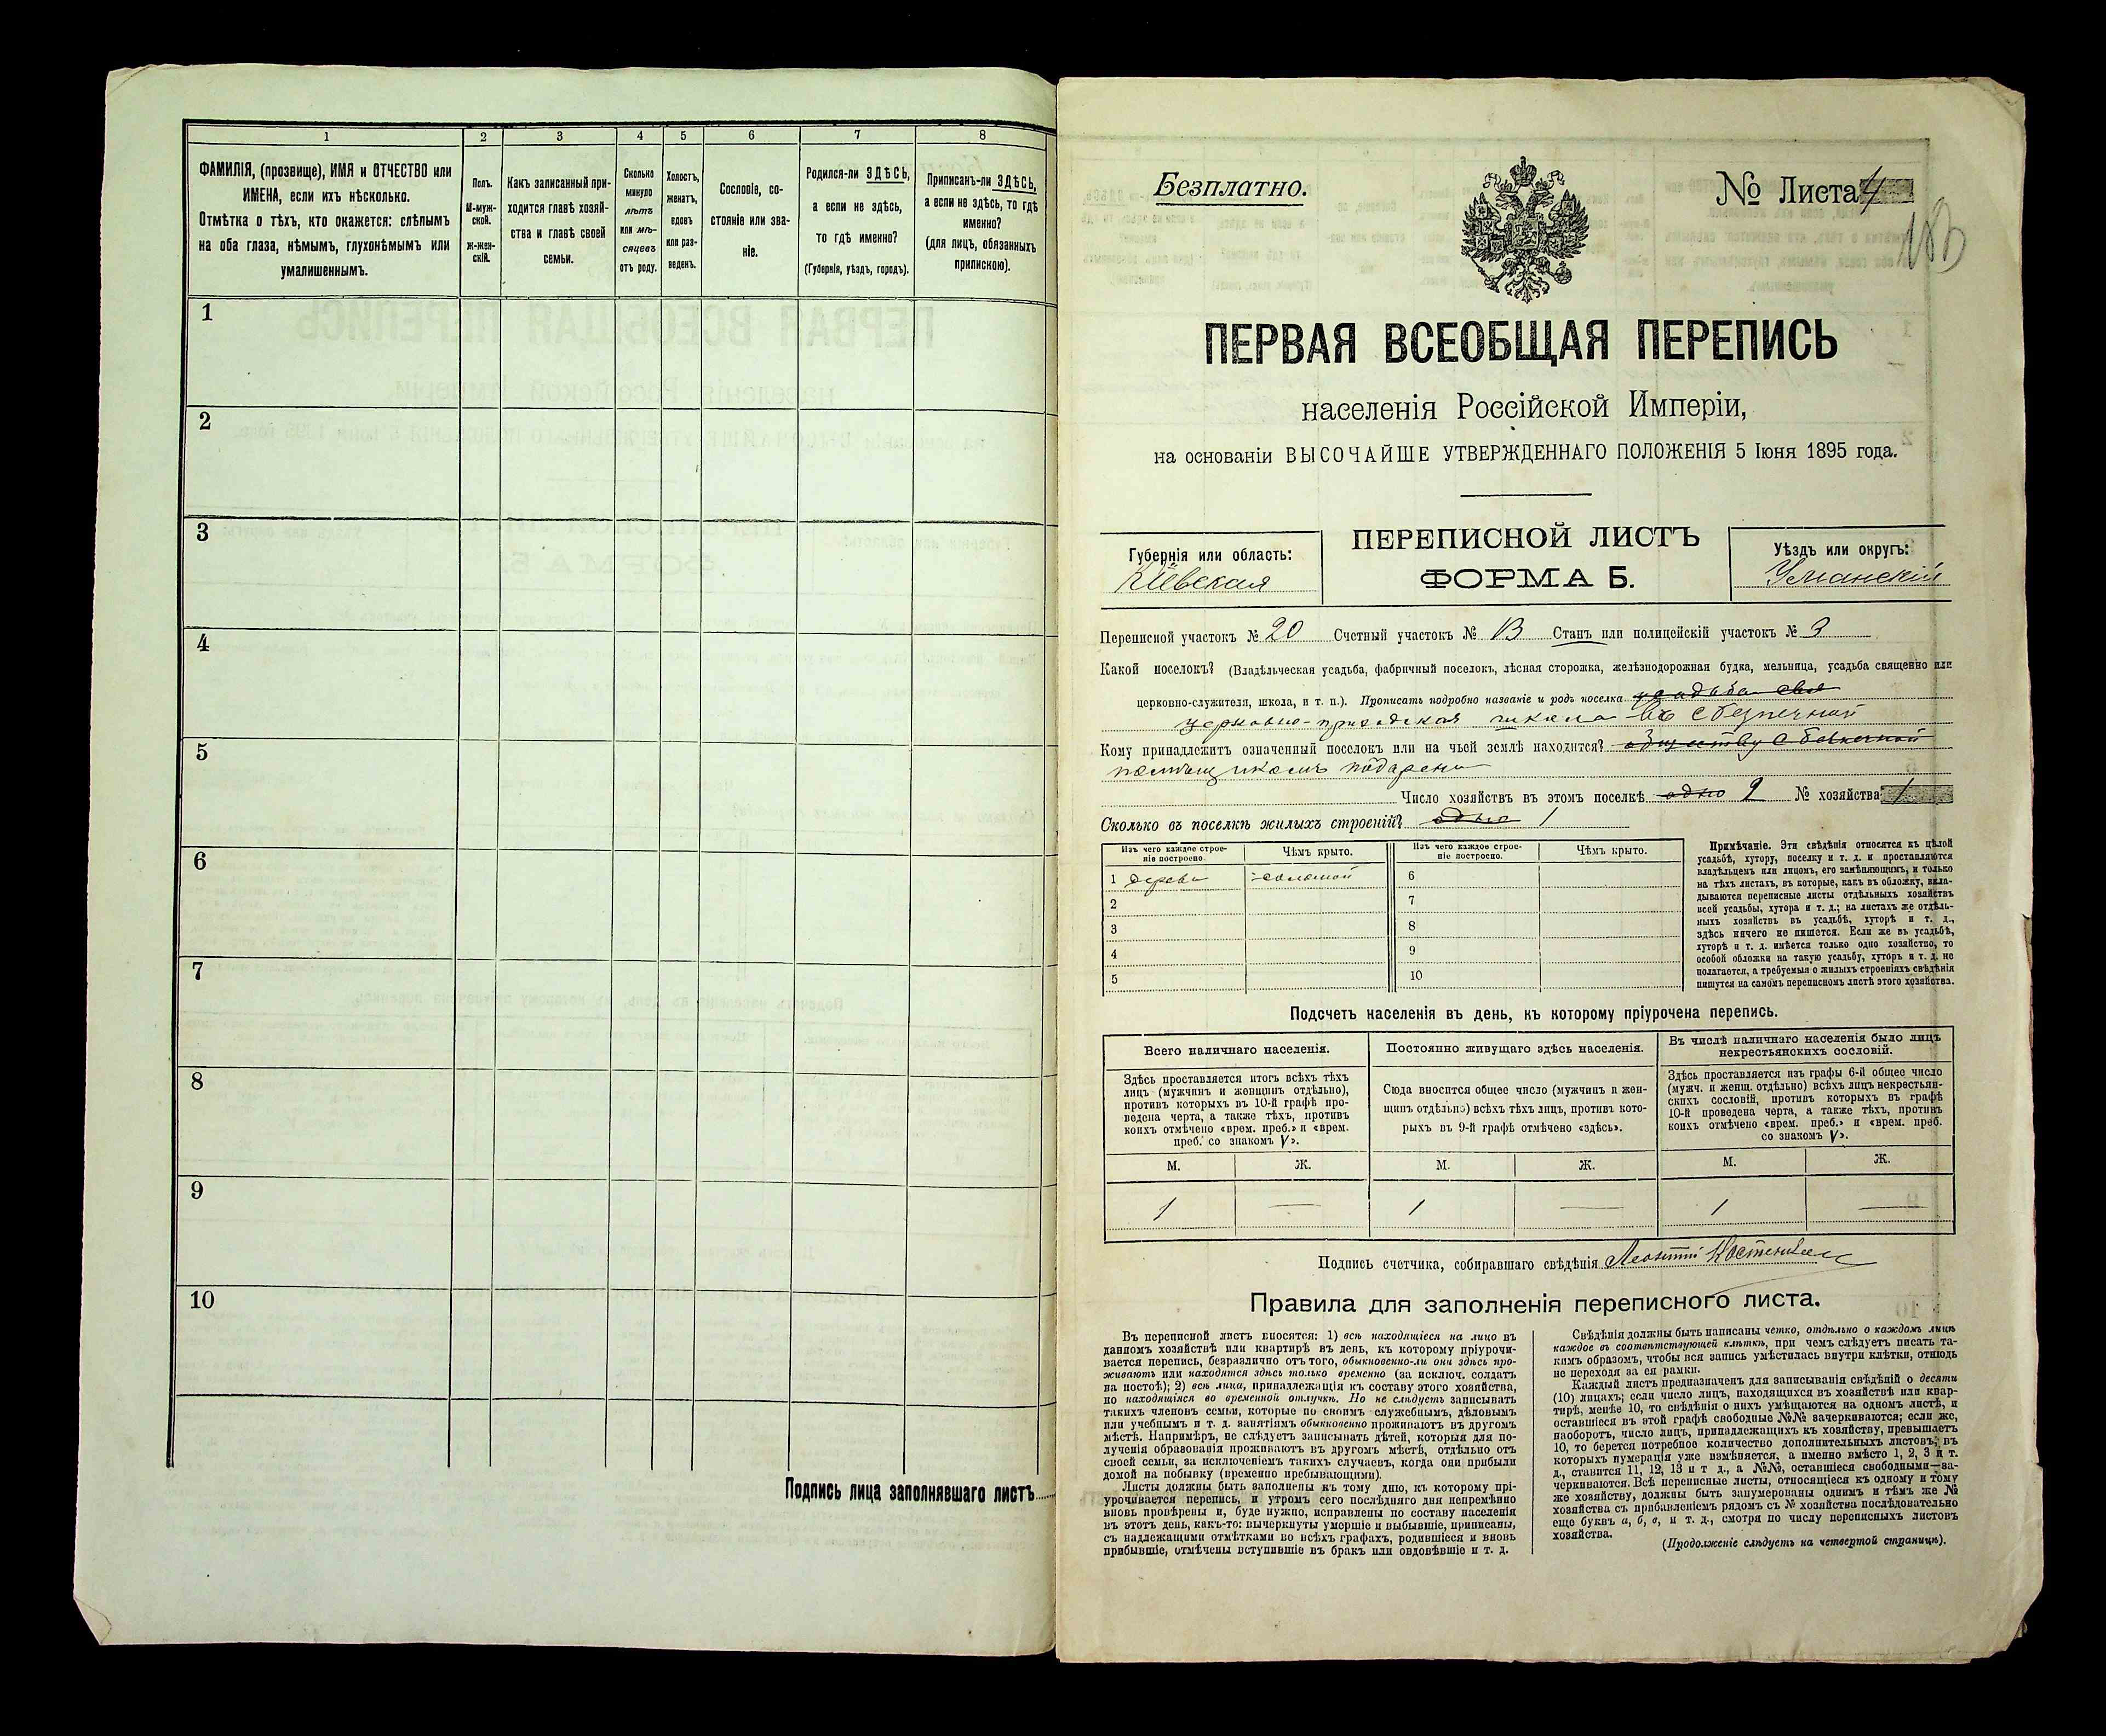 1
2
3
4
5
6
7
8
ФАМИЛІЯ, (прозвище), ИМЯ и ОТЧЕСТВО или
ИМЕНА, если ихъ нѣсколько.
Отмѣтка о тѣхъ, кто окажется: слѣпымъ
на оба глаза, нѣмымъ, глухонѣмымъ или
умалишеннымъ.
Полъ.
М-муж-
ской.
Ж-жен-
скій.
Какъ записанный при-
ходится главѣ хозяй-
ства и главѣ своей
семьи.
Сколько
минуло
лѣтъ
или мѣ-
сяцевъ
отъ роду.
Холостъ,
женатъ,
вдовъ
или раз-
веденъ.
Сословіе, со-
стояніе или зва-
ніе.
Родился-ли ЗДѢСЬ,
а если не здѣсь,
то гдѣ именно?
(Губернія, уѣздъ, городъ).
Приписанъ-ли ЗДѢСЬ,
а если не здѣсь, то гдѣ
именно?
(для лицъ, обязанныхъ
припискою).
1
2
3
4
5
6
7
8
9
10
Подпись лица заполнявшаго листъ
Безплатно.
№ Листа 4
ПЕРВАЯ ВСЕОБЩАЯ ПЕРЕПИСЬ
населенія Россійской Имперіи,
на основаніи ВЫСОЧАЙШЕ УТВЕРЖДЕННАГО ПОЛОЖЕНІЯ 5 Іюня 1895 года.
Губернія или область:
Кіевская
ПЕРЕПИСНОЙ ЛИСТЪ
ФОРМА Б.
Уѣздъ или округъ:
Уманскій
Переписной участокъ № 20 Счетный участокъ № В Станъ или полицейскій участокъ № 3
Какой поселокъ? (Владѣльческая усадьба, фабричный поселокъ, лѣсная сторожка, желѣзнодорожная будка, мельница, усадьба священно или
церковно-служителя, школа, и т. п.). Прописать подробно названіе и родъ поселка усадьба
церковно-приходская школа въ с Безпечной
Кому принадлежитъ означенный поселокъ или на чьей землѣ находится? обществу с Безпечной
помѣщикомъ подарена
Число хозяйствъ въ этомъ поселкѣ одно 2 № хозяйства 1
Сколько въ поселкѣ жилыхъ строеній? одно 1
Изъ чего каждое строе-
ніе построено.
Чѣмъ крыто.
Изъ чего каждое строе-
ніе построено.
Чѣмъ крыто.
1 дерева соломой
2
3
4
5
6
7
8
9
10
Примѣчаніе. Эти свѣдѣнія относятся къ цѣлой
усадьбѣ, хутору, поселку и т. д. и проставляются
владѣльцемъ или лицомъ, его замѣняющимъ, и только
на тѣхъ листахъ, въ которые, какъ въ обложку, вкла-
дываются переписные листы отдѣльныхъ хозяйствъ
всей усадьбы, хутора и т. д.; на листахъ же отдѣль-
ныхъ хозяйствъ въ усадьбѣ, хуторѣ и т. д.,
здѣсь ничего не пишется. Если же въ усадьбѣ,
хуторѣ и т. д. имѣется только одно хозяйство, то
особой обложки на такую усадьбу, хуторъ и т. д. не
полагается, а требуемыя о жилыхъ строеніяхъ свѣдѣнія
пишутся на самомъ переписномъ листѣ этого хозяйства.
Подсчетъ населенія въ день, къ которому пріурочена перепись.
Всего наличнаго населенія.
Здѣсь проставляется итогъ всѣхъ тѣхъ
лицъ (мужчинъ и женщинъ отдѣльно),
противъ которыхъ въ 10-й графѣ про-
ведена черта, а также тѣхъ, противъ
коихъ отмѣчено «врем. преб.» и «врем.
преб. со знакомъ V».
Постоянно живущаго здѣсь населенія.
Сюда вносится общее число (мужчинъ и жен-
щинъ отдѣльно) всѣхъ тѣхъ лицъ, противъ кото-
рыхъ въ 9-й графѣ отмѣчено «здѣсь».
Въ числѣ наличнаго населенія было лицъ
некрестьянскихъ сословій.
Здѣсь проставляется изъ графы 6-й общее число
(мужч. и женщ. отдѣльно) всѣхъ лицъ некрестьян-
скихъ сословій, противъ которыхъ въ графѣ
10-й проведена черта, а также тѣхъ, противъ
коихъ отмѣчено «врем. преб.» и «врем. преб.
со знакомъ V».
М. Ж. М. Ж. М. Ж.
1 — 1 — 1 —
Подпись счетчика, собиравшаго свѣдѣнія Леонтій
Правила для заполненія переписного листа.
Въ переписной листъ вносятся: 1) всѣ находящіеся на лицо въ
данномъ хозяйствѣ или квартирѣ въ день, къ которому пріурочи-
вается перепись, безразлично отъ того, обыкновенно-ли они здѣсь про-
живаютъ или находятся здѣсь только временно (за исключ. солдатъ
на постоѣ); 2) всѣ лица, принадлежащія къ составу этого хозяйства,
но находящіяся во временной отлучкѣ. Но не слѣдуетъ записывать
такихъ членовъ семьи, которые по своимъ служебнымъ, дѣловымъ
или учебнымъ и т. д. занятіямъ обыкновенно проживаютъ въ другомъ
мѣстѣ. Напримѣръ, не слѣдуетъ записывать дѣтей, которыя для по-
лученія образованія проживаютъ въ другомъ мѣстѣ, отдѣльно отъ
своей семьи, за исключеніемъ такихъ случаевъ, когда они прибыли
домой на побывку (временно пребывающими).
Листы должны быть заполнены къ тому дню, къ которому прі-
урочивается перепись, и утромъ сего послѣдняго дня непремѣнно
вновь провѣрены и, буде нужно, исправлены по составу населенія
въ этотъ день, какъ-то: вычеркнуты умершіе и выбывшіе, приписаны,
съ надлежащими отмѣтками во всѣхъ графахъ, родившіеся и вновь
прибывшіе, отмѣчены вступившіе въ бракъ или овдовѣвшіе и т. д.
Свѣдѣнія должны быть написаны четко, отдѣльно о каждомъ лицѣ
каждое въ соотвѣтствующей клѣткѣ, при чемъ слѣдуетъ писать та-
кимъ образомъ, чтобы вся запись умѣстилась внутри клѣтки, отнюдь
не переходя за ея рамки.
Каждый листъ предназначенъ для записыванія свѣдѣній о десяти
(10) лицахъ; если число лицъ, находящихся въ хозяйствѣ или квар-
тирѣ, менѣе 10, то свѣдѣнія о нихъ умѣщаются на одномъ листѣ, и
оставшіеся въ этой графѣ свободные №№ зачеркиваются; если же,
наоборотъ, число лицъ, принадлежащихъ къ хозяйству, превышаетъ
10, то берется потребное количество дополнительныхъ листовъ, въ
которыхъ нумерація уже измѣняется, а именно вмѣсто 1, 2, 3 и т.
д., ставится 11, 12, 13 и т д., а №№, оставшіеся свободными—за-
черкиваются. Всѣ переписные листы, относящіеся къ одному и тому
же хозяйству, должны быть занумерованы однимъ и тѣмъ же №
хозяйства съ прибавленіемъ рядомъ съ № хозяйства послѣдовательно
еще буквъ а, б, в, и т. д., смотря по числу переписныхъ листовъ
хозяйства.
(Продолженіе слѣдуетъ на четвертой страницѣ).